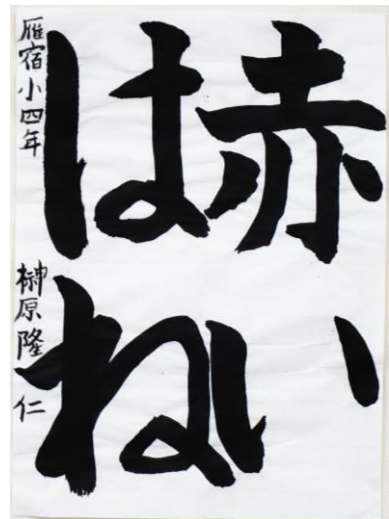 赤い
はね
雁宿小四年
榊原隆仁